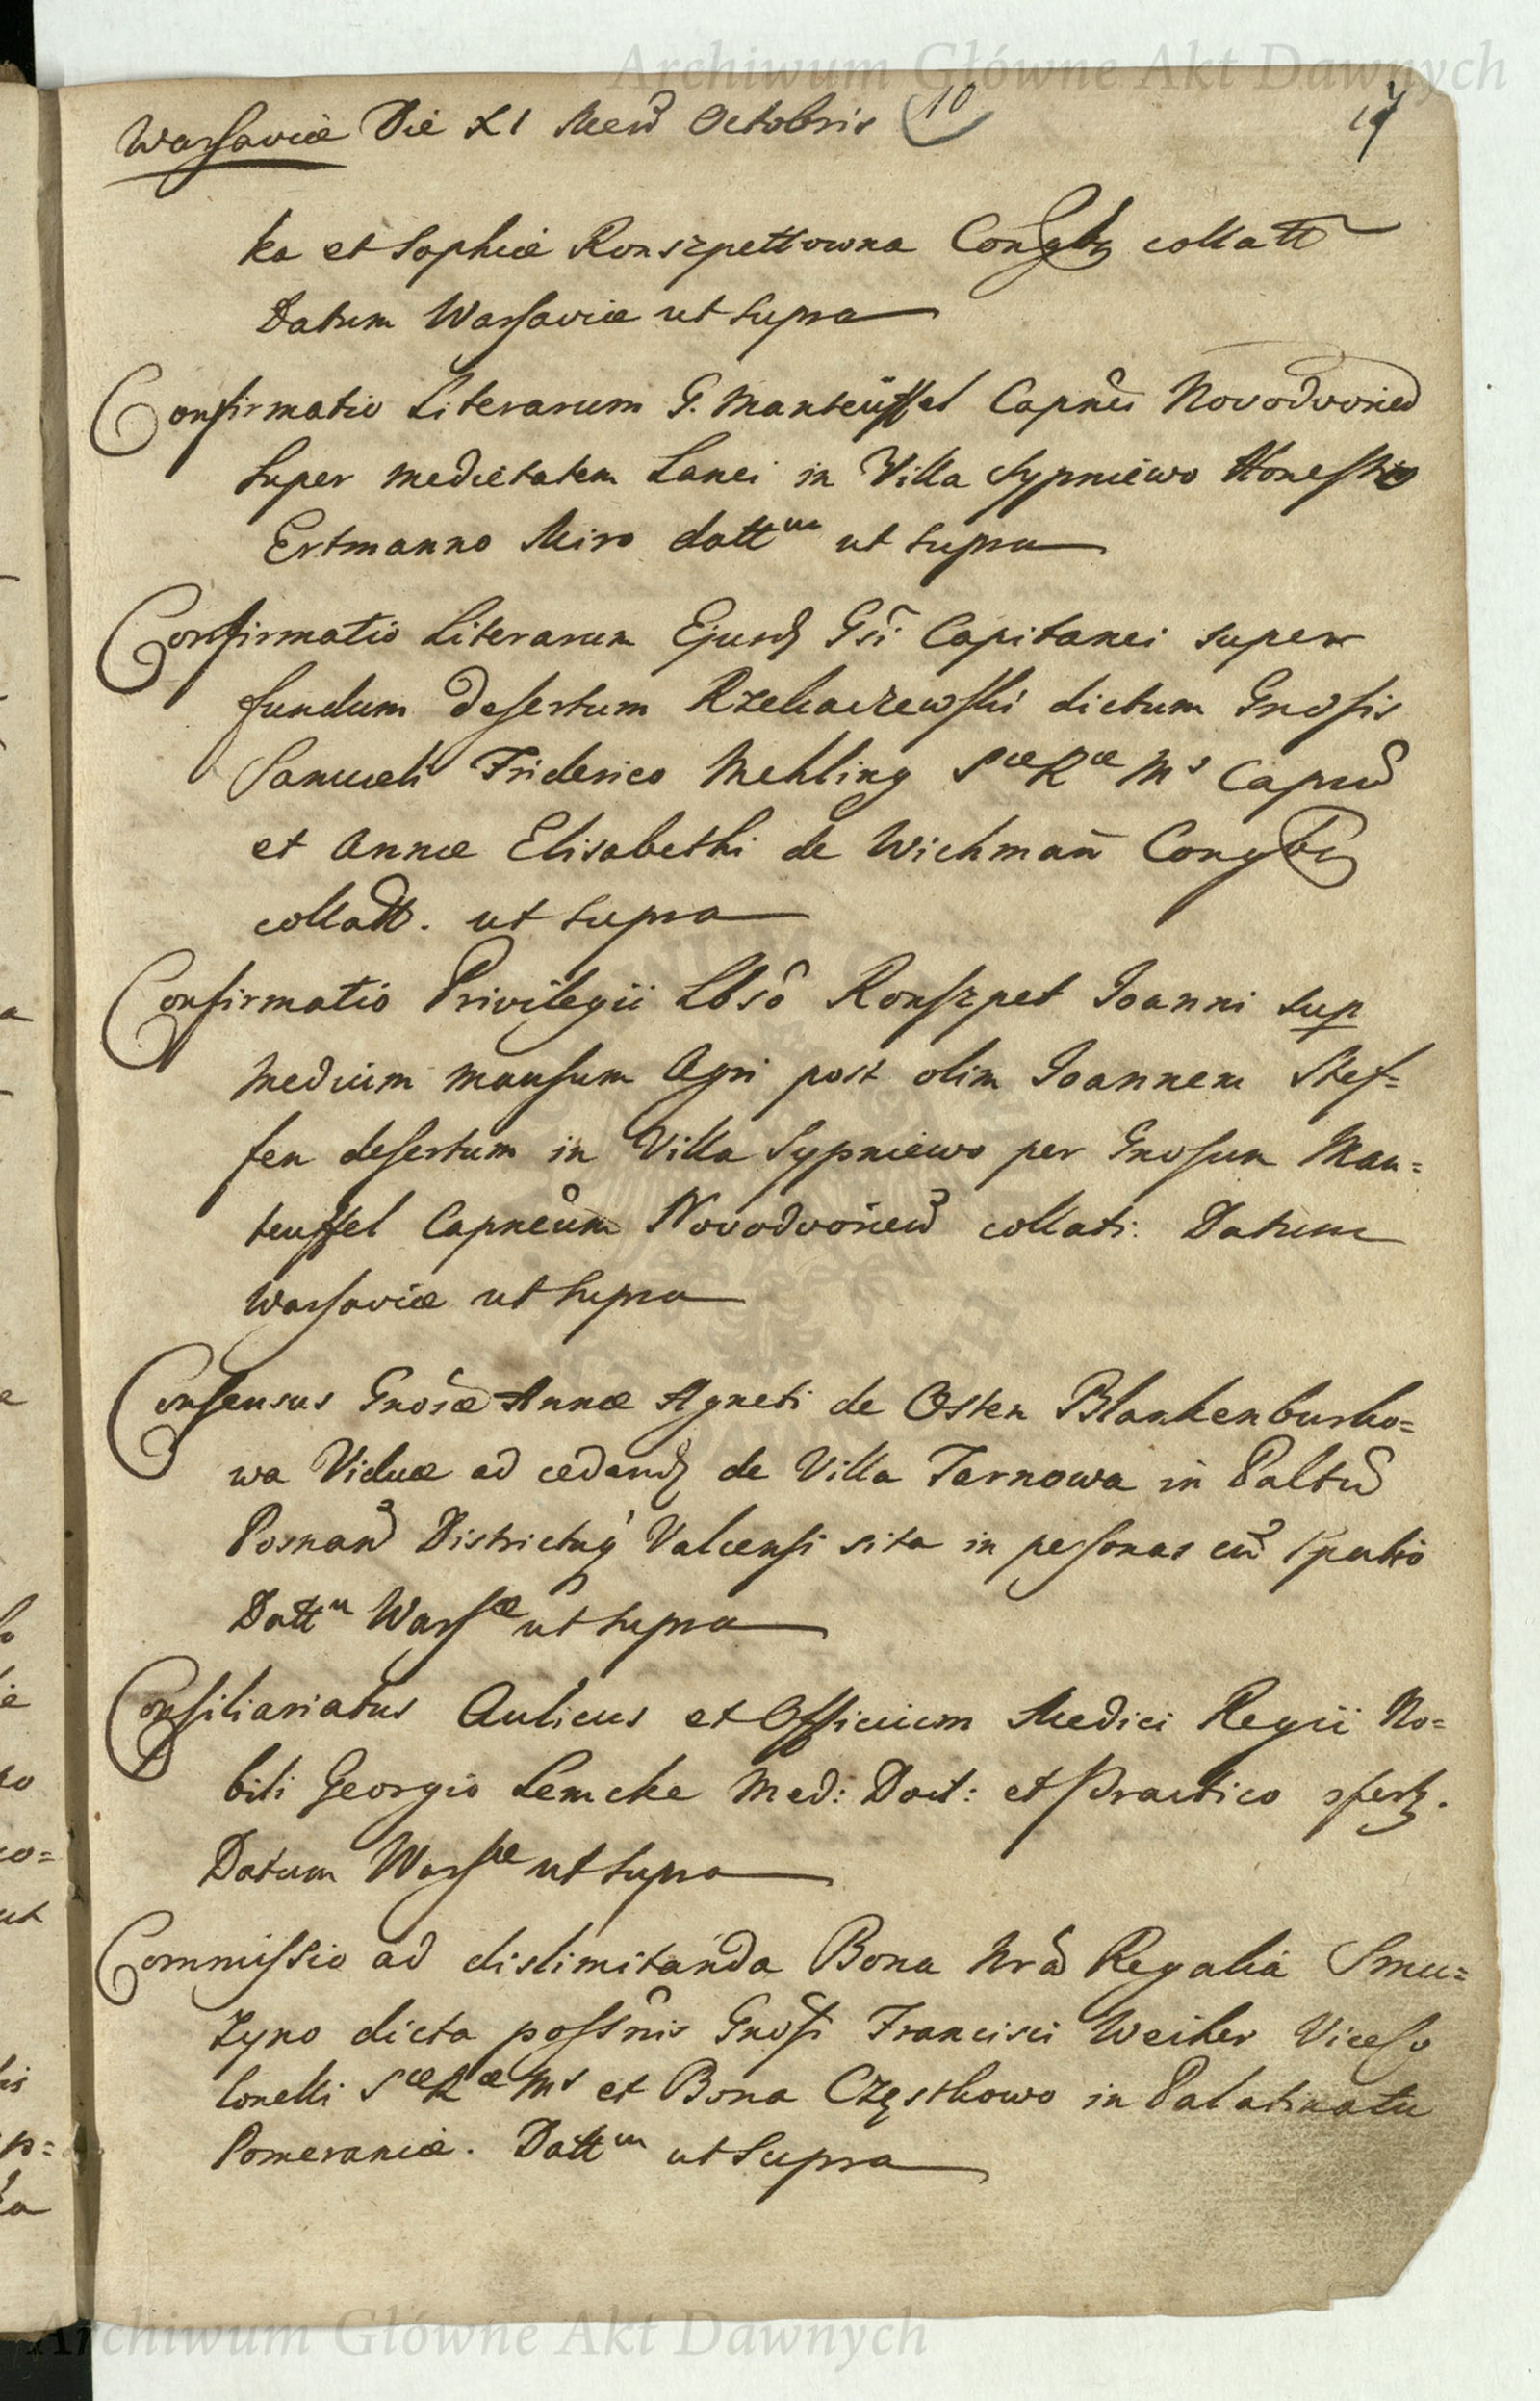 Archiwum Główne Akt Dawnych
Warsaviæ Die XI Mens Octobris 10
ka et Sophiæ Ronszpettowna Congbz collatt
Datum Warsaviæ ut supra
Confirmatio Literarum G. Manteüffel Capnei Novodvorien
super medietatem Lanei in Villa Sypniewo Honesto
Ertmanno Miro datt^m ut supra
Confirmatio Literarum Ejusd Gsi Capitanei super
fundum desertum Rzekaczewski dictum Gnosis
Samueli Friderico Mehling S^æ R^æ M^s Capneo
et Annæ Elisabethi de Wichmañ Congbz
collatt. ut supra
Confirmatio Privilegii Lbso Ronszpet Ioanni sup
medium mansum Agri post olim Ioannem Stef=
fen desertum in Villa Sypniewo per Gnosum Man=
teuffel Capneum Novodvorien collati. Datum
Warsaviæ ut supra
Consensus Gnosæ Annæ Agneti de Osten Blankenburko=
wa Viduæ ad cedend de Villa Tarnowa in Paltu
Posnan Districtuq Valcensi sita in personas cum
Datt^m Wars^æ ut supra
Consiliariatus Aulicus et Officium Medici Regii No=
bili Georgio Lemcke Med: Doct: et Practico
Datum Wars^æ ut supra
Commissio ad dislimitanda Bona Nra Regalia Smu=
zyno dicta possnis Gnosi Francisci Weiher Viceco
lonelli S^æ R^æ M^s et Bona Częstkowo in Palatinatu
Pomeraniæ. Datt^m ut supra
Archiwum Główne Akt Dawnych